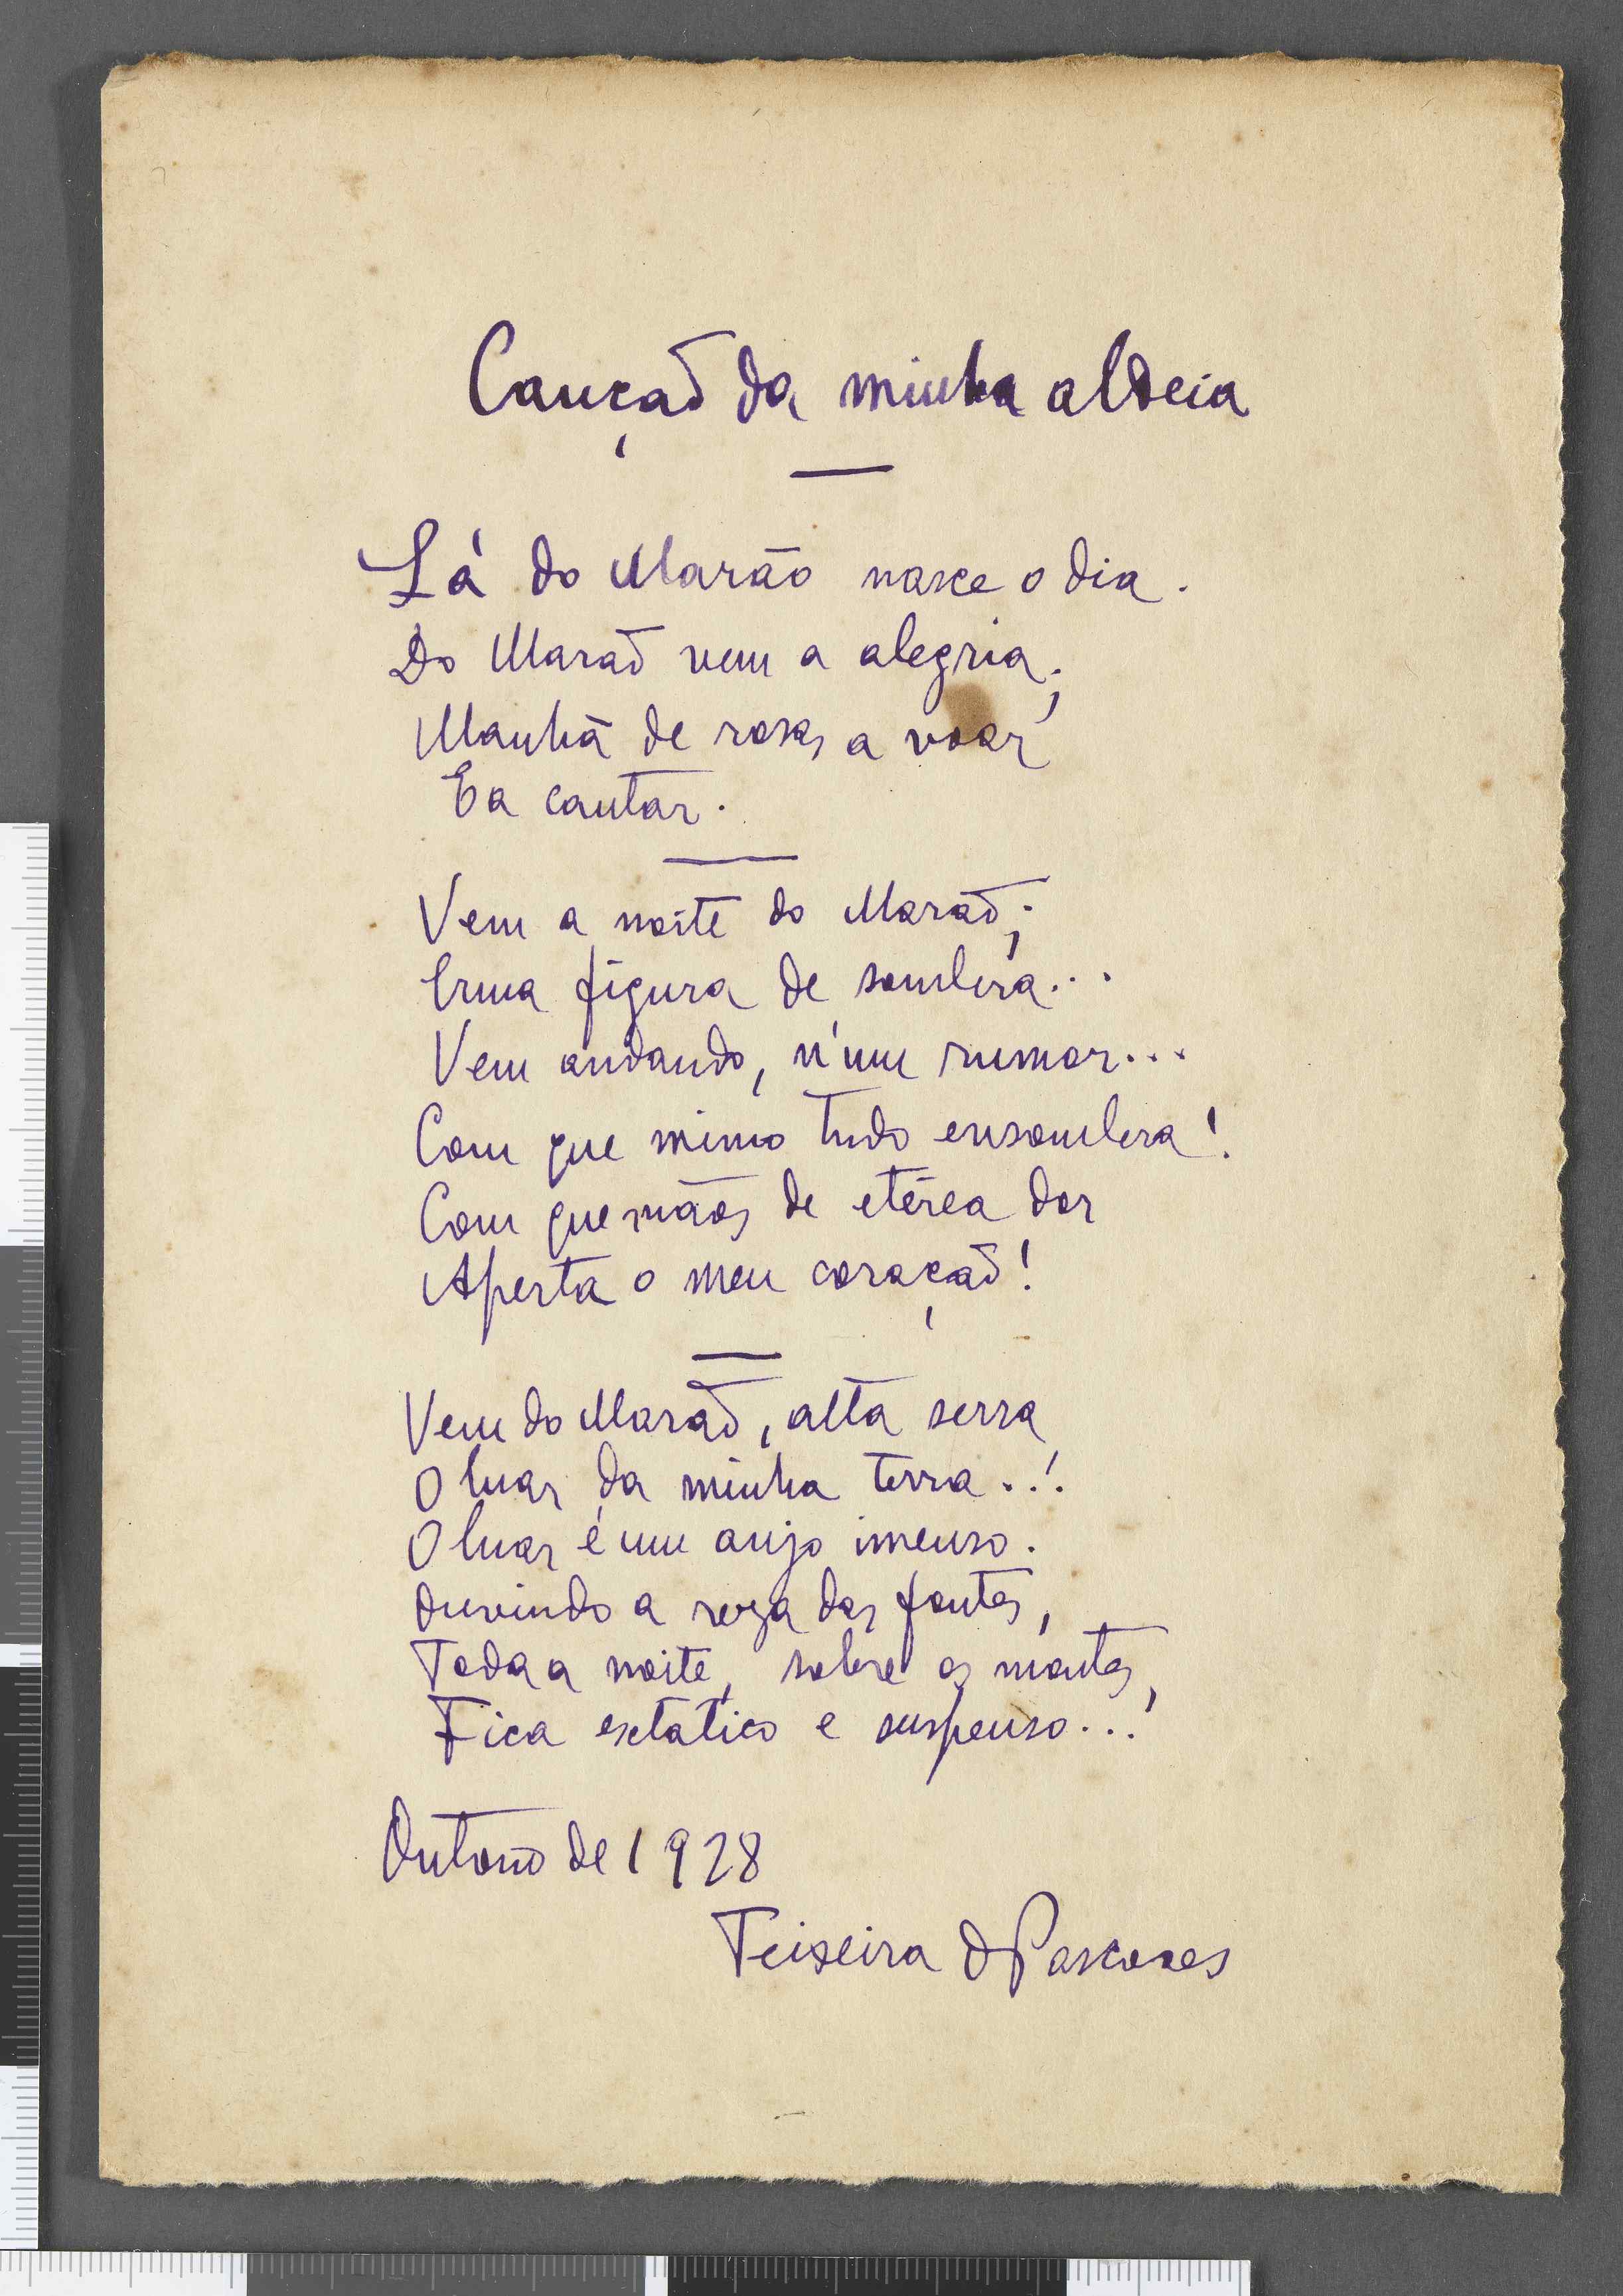 Canção da minha aldeia
Lá do Marão nasce o dia.
Do Marão vem a alegria;
Manhã de rosas a voar
E a cantar.
Vem a noite do Marão;
Erma figura de sombra...
Vem andando, n'um rumor...
Com que mimo tudo ensombra!
Com que mãos de etérea dor
Aperta o meu coração!
Vem do Marão, alta serra
O luar da minha terra..!
O luar é um anjo imenso.
Ouvindo a reza das fontes,
Toda a noite, sobre os montes,
Fica extatico e suspenso...!
Outono de 1928
Teixeira de Pascoaes